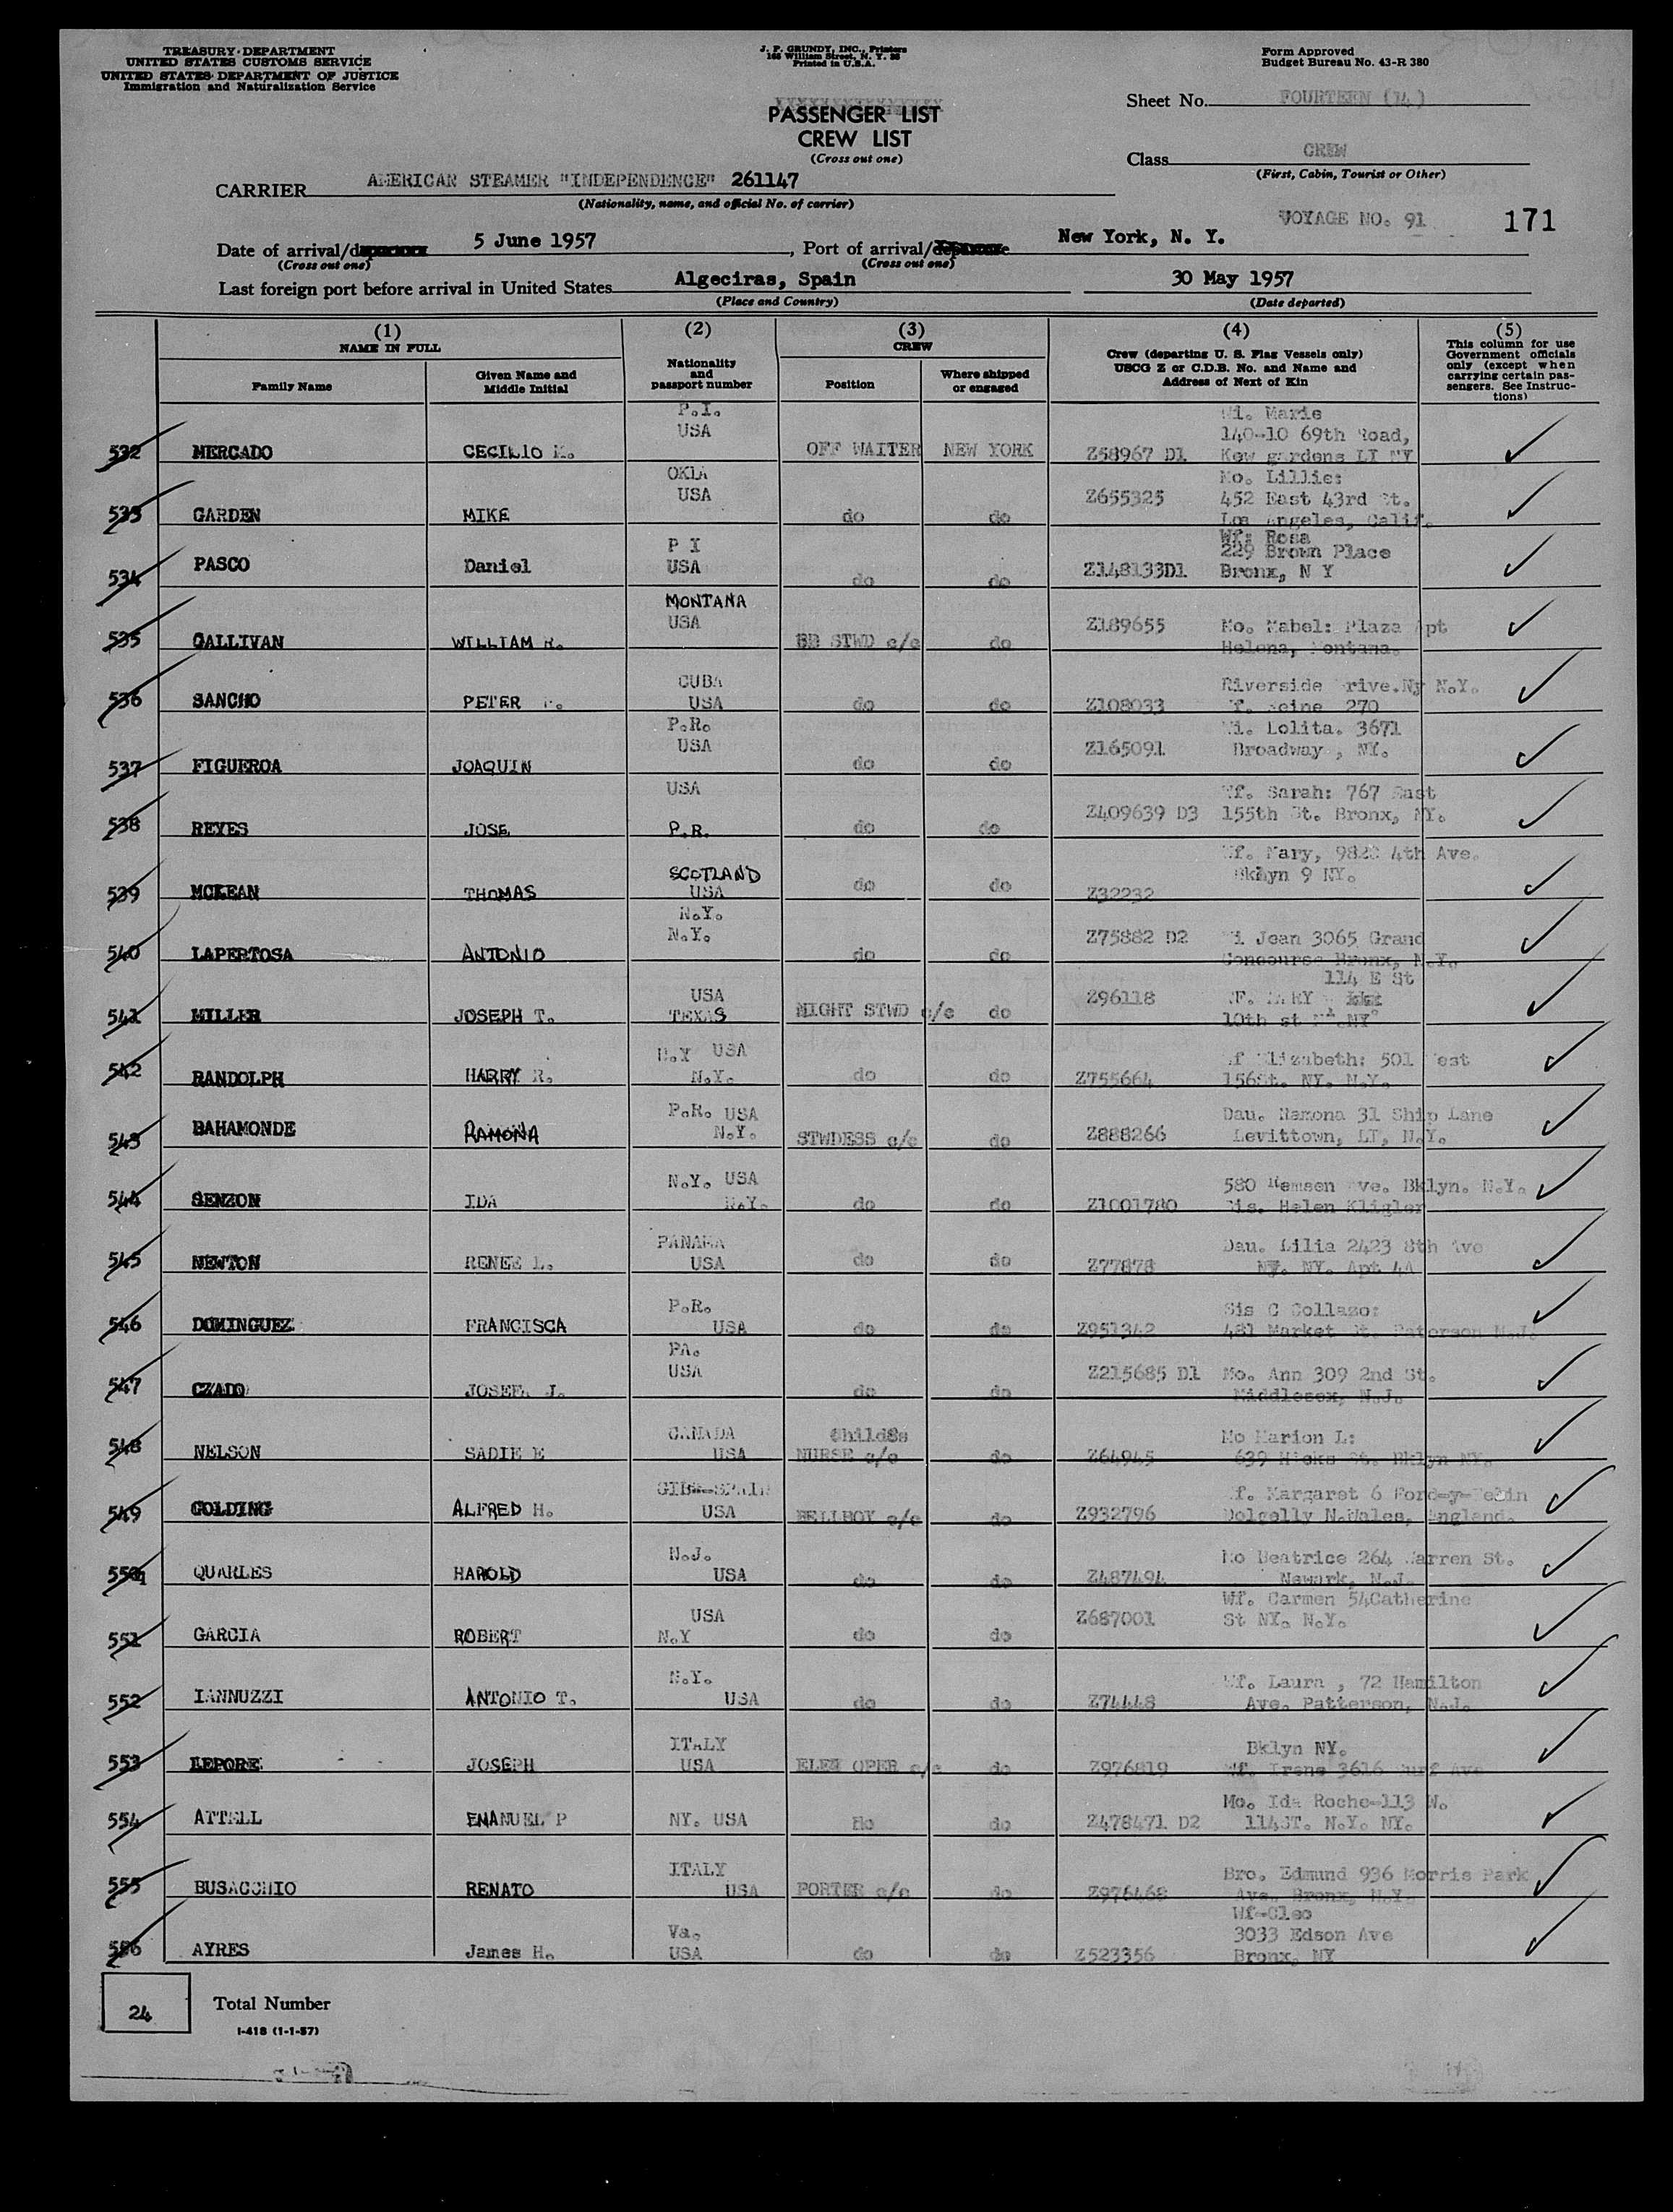 TREASURY DEPARTMENT
UNITED STATES CUSTOMS SERVICE
UNITED STATES DEPARTMENT OF JUSTICE
Immigration and Naturalization Service
J. P. GRUNDY, INC., Printers
Printed in U.S.A.
Form Approved
Budget Bureau No. 43-R 380
Sheet No. FOURTEEN (14)
PASSENGER LIST
CREW LIST
(Cross out one)
Class CREW
(First, Cabin, Tourist or Other)
CARRIER AMERICAN STEAMER "INDEPENDENCE" 261147
(Nationality, name, and official No. of carrier)
VOYAGE NO. 91 171
Date of arrival/ 5 June 1957, Port of arrival/ New York, N. Y.
(Cross out one) (Cross out one)
Last foreign port before arrival in United States Algeciras, Spain 30 May 1957
(Place and Country) (Date departed)
(1) NAME IN FULL
Family Name
Given Name and Middle Initial
(2)
Nationality and passport number
(3) CREW
Position
Where shipped or engaged
(4)
Crew (departing U. S. Flag Vessels only)
USCG Z or C.D.B. No. and Name and
Address of Next of Kin
(5)
This column for use
Government officials
only (except when
carrying certain pas-
sengers. See Instruc-
tions)
532 MERCADO CECILIO P.I. USA OFF WAITER NEW YORK Z58967 D1 Wi. Marie 140-10 69th Road, Kew gardens LI NY
533 GARDEN MIKE OKLA USA do do Z655325 Mo. Lillie: 452 East 43rd St. Los Angeles, Calif.
534 PASCO Daniel P I USA do do Z148133D1 Wf: Rosa 229 Brown Place Bronx, N Y
535 GALLIVAN WILLIAM R. MONTANA USA BR STWD c/c do Z189655 Mo. Mabel: Plaza Apt Helena, Montana.
536 SANCHO PETER CUBA USA do do Z108033 Riverside Drive.Ny N.Y. 270
537 FIGUEROA JOAQUIN P.R. USA do do Z165091 Wi. Lolita. 3671 Broadway, NY.
538 REYES JOSE USA P.R. do do Z409639 D3 Wf. Sarah: 767 East 155th St. Bronx, NY.
539 MCKEAN THOMAS SCOTLAND USA do do Z32232 Wf. Mary, 4th Ave. Bklyn 9 NY.
540 LAPERTOSA ANTONIO N.Y. N.Y. do do Z75882 D2 Wi Jean 3065 Grand Concourse Bronx, N.Y.
541 MILLER JOSEPH T. USA TEXAS NIGHT STWD c/c do Z96118 114 E St WF. MARY 10th st NY
542 RANDOLPH HARRY R. N.Y USA N.Y. do do Z755664 Wf Elizabeth: 501 West 156St. NY. N.Y.
543 BAHAMONDE RAMONA P.R. USA N.Y. STWDESS c/c do Z888266 Dau. Ramona 31 Ship Lane Levittown, LI, N.Y.
544 SENZON IDA N.Y. USA N.Y. do do Z1001780 580 Remsen Ave. Bklyn. N.Y. Sis. Helen Kligler
545 NEWTON RENEE L. PANAMA USA do do Z77878 Dau. Lilia 2423 8th Ave NY. NY. Apt 4A
546 DOMINGUEZ FRANCISCA P.R. USA do do Z951342 Sis C Collazo: 481 Market St. Paterson N.J.
547 CZADO JOSEFA J. PA. USA do do Z215685 D1 Mo. Ann 309 2nd St. Middlesex, N.J.
548 NELSON SADIE E CANADA USA NURSE c/c do Z64945 Mo Marion L: 639 Hicks St. Bklyn NY.
549 GOLDING ALFRED H. USA BELLBOY c/c do Z932796 Wf. Margaret 6 Dolgelly N.Wales, England.
550 QUARLES HAROLD N.J. USA do do Z487494 Mo Beatrice 264 Warren St. Newark, N.J.
551 GARCIA ROBERT USA N.Y do do Z687001 Wf. Carmen 54Catherine St NY. N.Y.
552 IANNUZZI ANTONIO T. N.Y. USA do do Z74448 Wf. Laura, 72 Hamilton Ave. Patterson, N.J.
553 LEPORE JOSEPH ITALY USA ELEV OPER c/c do Z976819 Bklyn NY. Wf. Irene 3616 Surf Ave
554 ATTELL EMANUEL P NY. USA do do Z478471 D2 Mo. Ida Roche-113 W. 114ST. N.Y. NY.
555 BUSACCHIO RENATO ITALY USA PORTER c/c do Z976468 Bro. Edmund 936 Morris Park Ave. Bronx, N.Y.
556 AYRES James H. Va. USA do do Z523356 Wf-Cleo 3033 Edson Ave Bronx, NY
24 Total Number
I-418 (1-1-57)